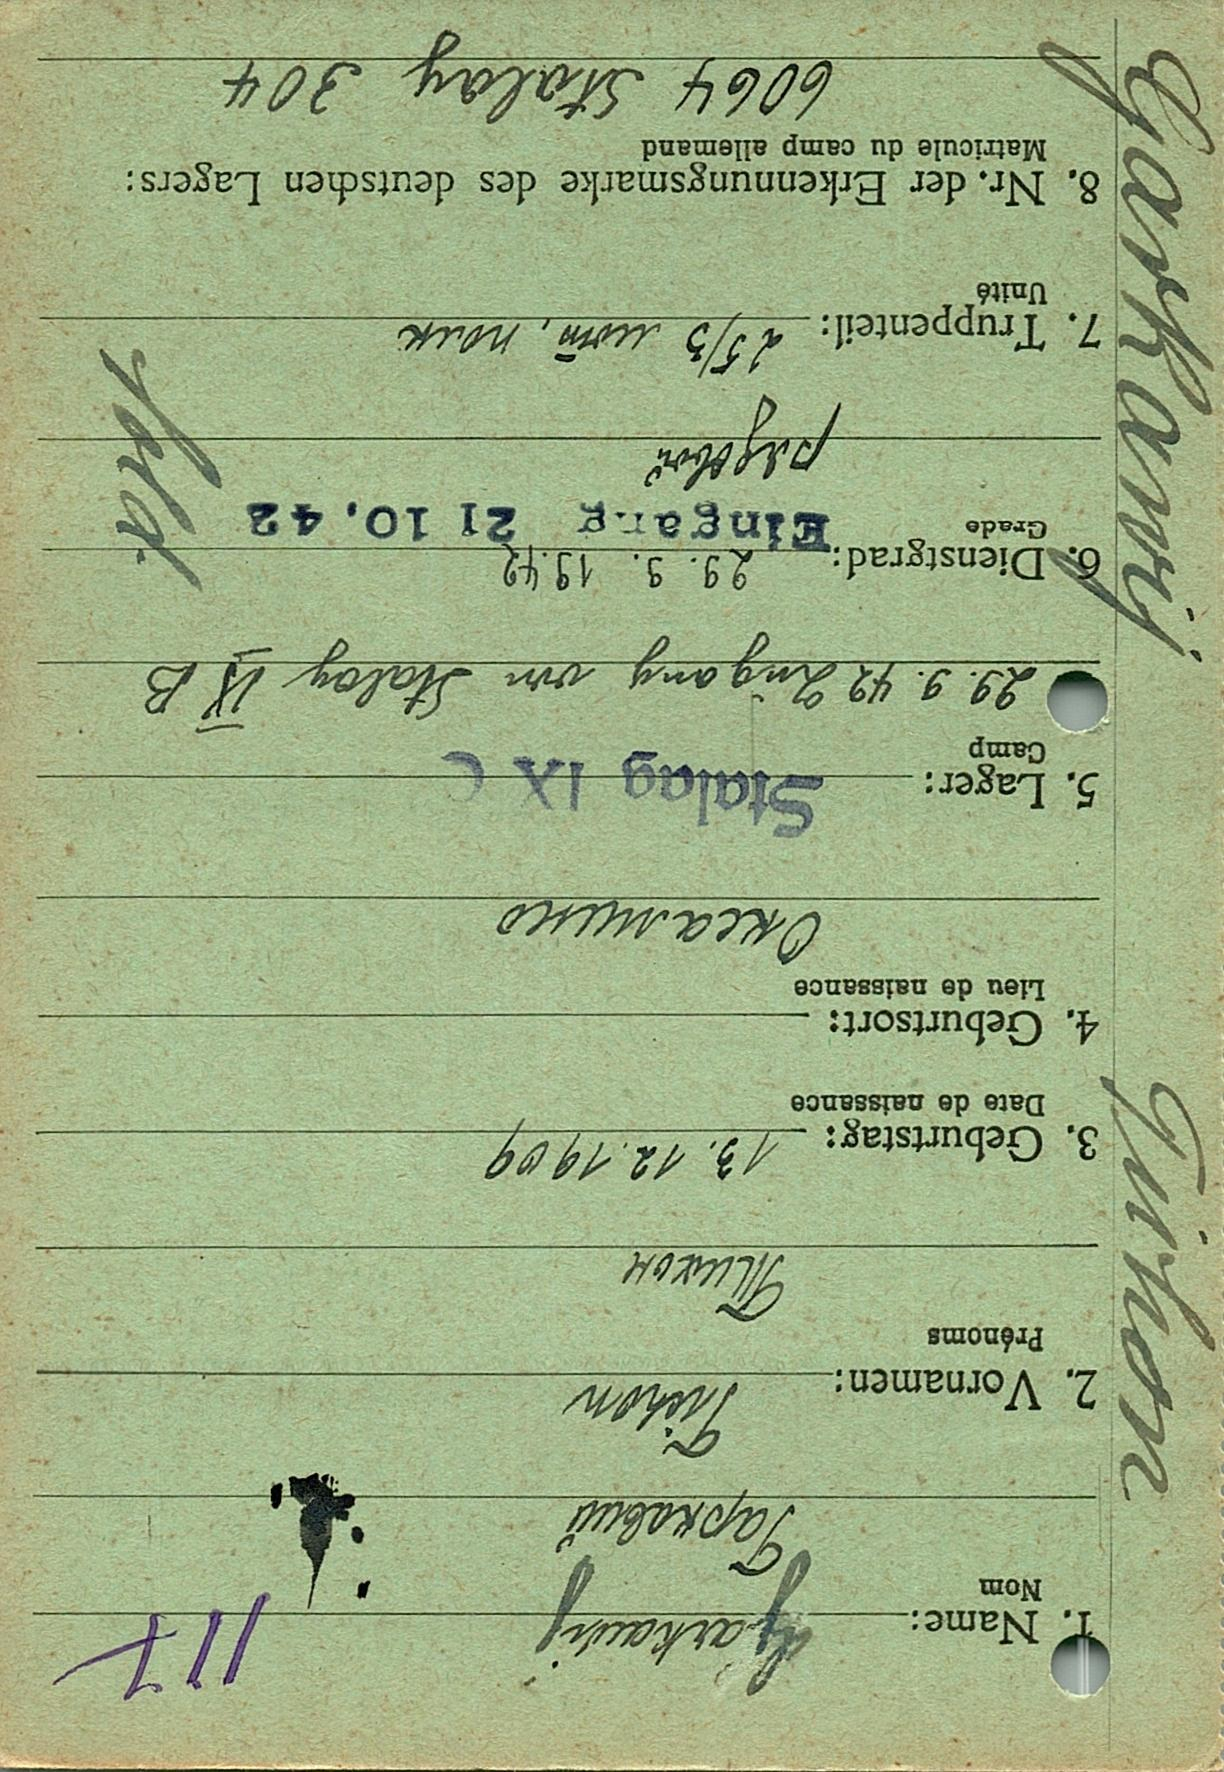 Garkawij Tichon
117
1. Name: Garkawij
Nom
Гаркавий
Tichon
2. Vornamen:
Prénoms
Тихон
3. Geburtstag: 13.12.1909
Date de naissance
4. Geburtsort:
Lieu de naissance
5. Lager: Stalag IX C
Camp
29.9.42 Zugang von Stalag IX B
29.9.1942
6. Dienstgrad: Eingang 21 10.42
Grade
рядовой
Sold.
7. Truppenteil: 25/3
Unité
8. Nr. der Erkennungsmarke des deutschen Lagers:
Matricule du camp allemand
6064 Stalag 304